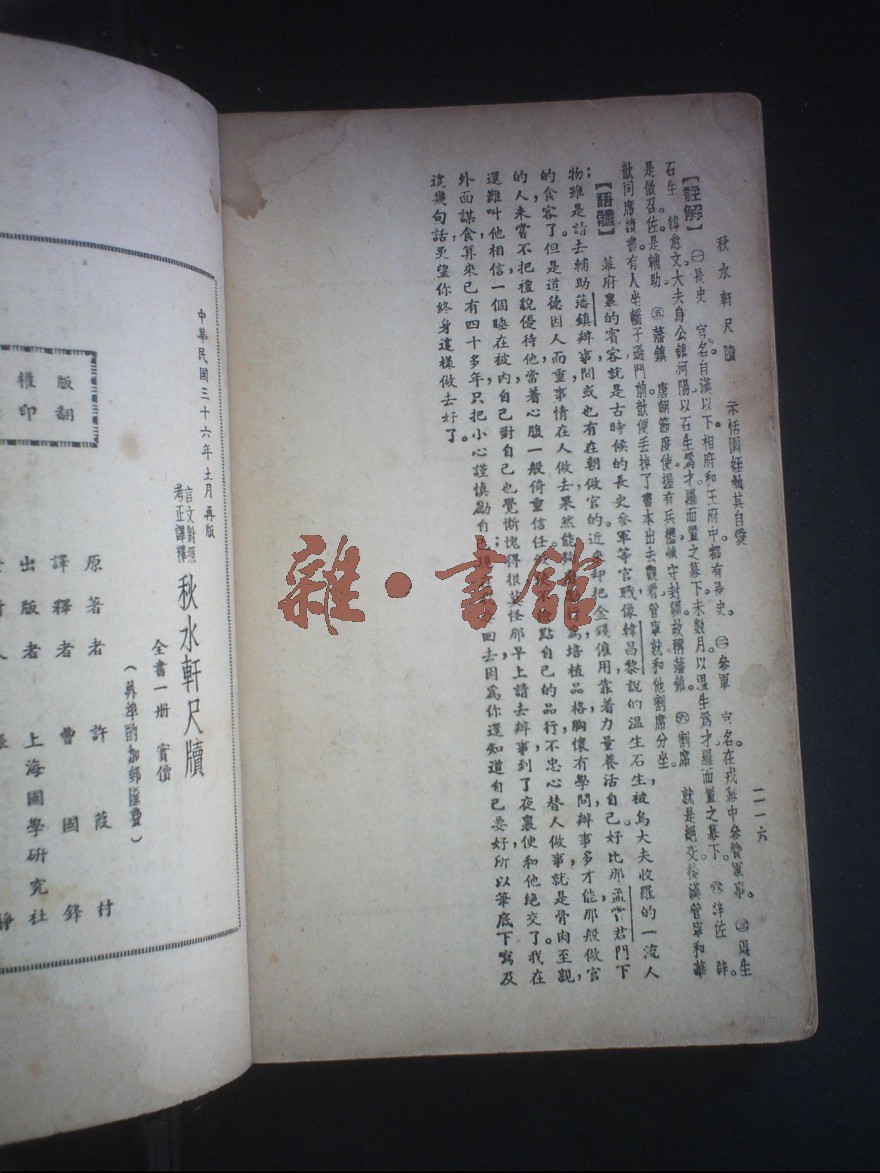 秋水軒尺牘　示恬園姪勉其自愛　二一六
【註解】㊀長史　官名自漢以下。相府和王府中。都有長史。㊁參軍　官名。在戎幕中參贊軍事。㊂溫生
石生　韓愈文。大夫烏公鎮河陽。以石生爲才。羅而置之幕下。未數月。以溫生爲才。羅而置之幕下。㊃辟佐　辟。
是徵召。佐。是輔助。㊄藩鎮　唐朝節度使。握有兵權。鎮守封疆。故稱藩鎮。㊅割席　就是絕交。後漢管寧和華
歆同席讀書。有人坐轎子過門前。歆便丟掉了書本出去觀看。管寧就和他割席分坐。
【語體】幕府裏的賓客，就是古時候的長史參軍等官職，像韓昌黎說的溫生石生，被烏大夫收羅的一流人
物；雖是請去輔助藩鎮辦事，問或也有在朝做官的。近來却把金錢僱用，靠着力量養活自己，好比那孟嘗君門下
的食客了。但是道德因人而重，事情在人做去，果然能夠培植品格，胸懷有學問，辦事多才能，那般做官
的人，未嘗不把禮貌優待他，當着心腹一般倚重信任點自己的品行，不忠心替人做事，就是骨肉至親，
還難叫他相信，一個睡在被內，自己對自己也覺慚愧得很，莫怪那早上請去辦事，到了夜裏便和他絕交了。我在
外面謀食，算來已有四十多年，只把小心謹慎勵自己，現回去，因爲你還知道自己要好，所以筆底下寫及
這幾句話，更望你終身這樣做去好了。
雜·書館
中華民國三十六年十一月再版
言文對照
考正譯釋
秋水軒尺牘
全書一册　實價
（外埠酌加郵匯費）
原著者　許葭村
譯釋者　曹國鋒
出版者　上海國學研究社
版權
翻印